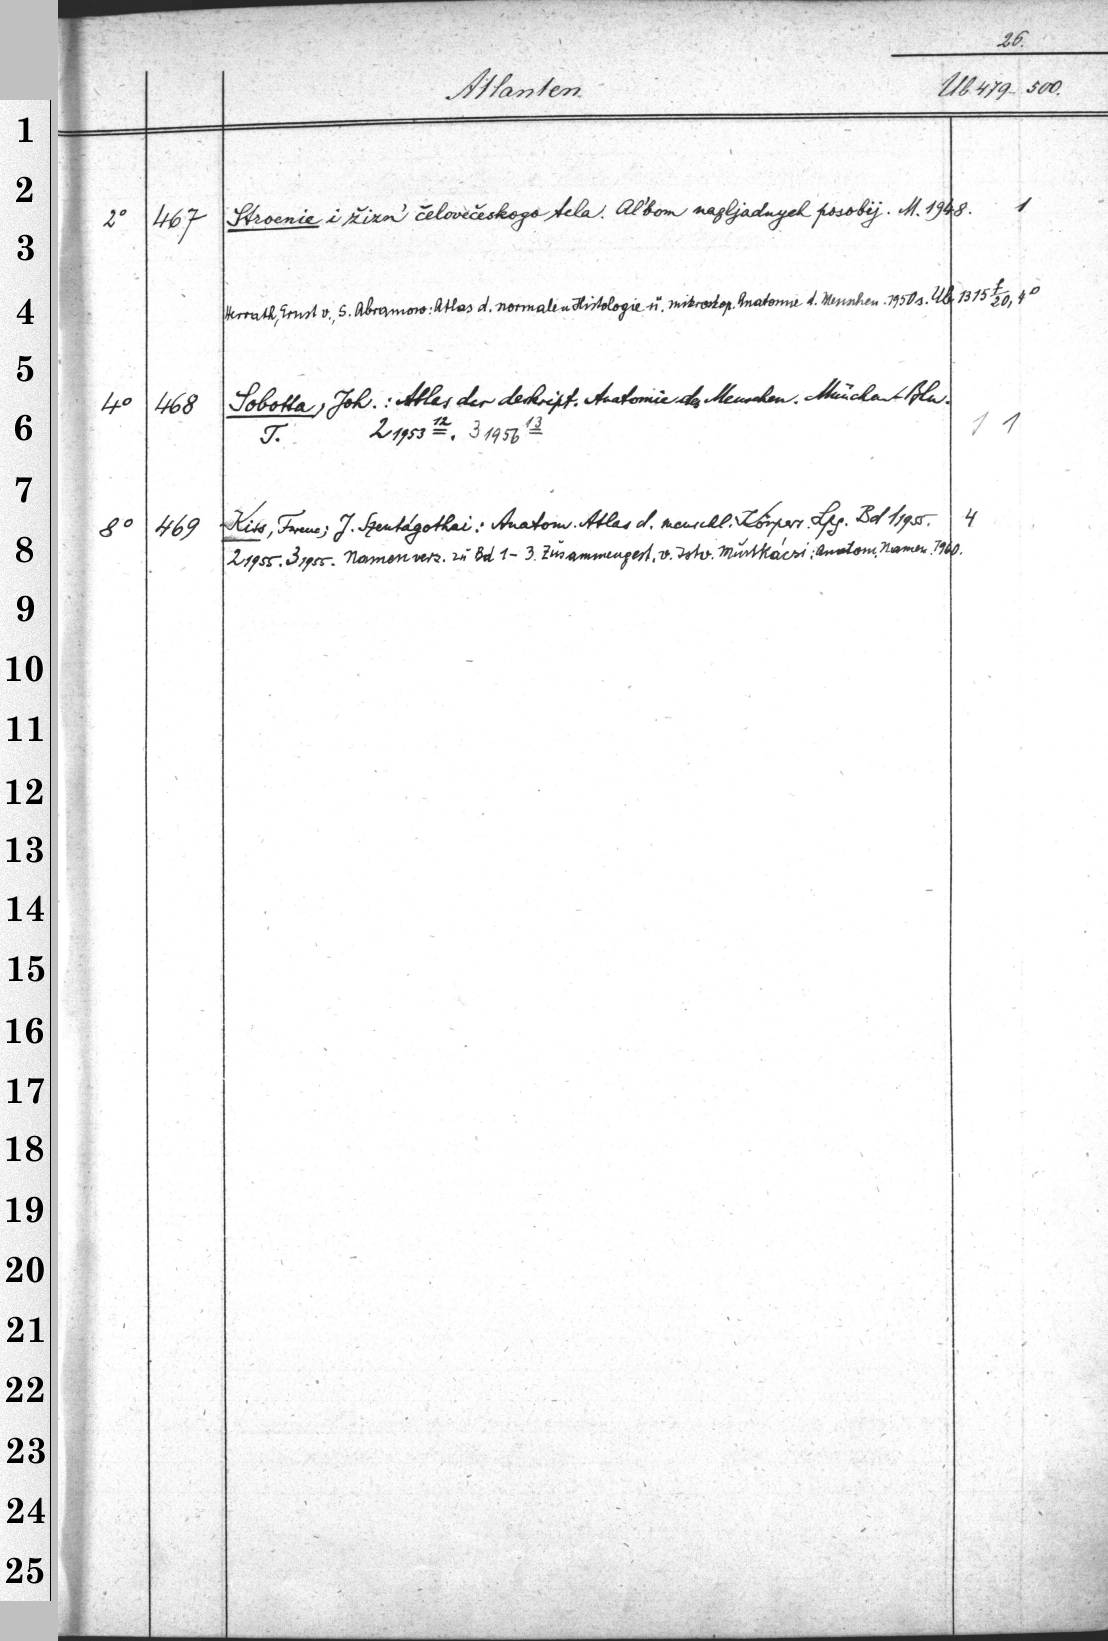 26.
Atlanten
Ub 479-500.
1
2
2° 467 Stroenie i žizn' čelovečeskogo tela. Al'bom nagljadnych posobij. M. 1948. 1
3
Herrath, Ernst v., S. Abramow: Atlas d. normalen Histologie u. mikroskop. Anatomie d. Menschen. 1950 s. Ub 1315 f/20, 4°
4
5
4° 468 Sobotta, Joh.: Atlas der deskript. Anatomie des Menschen. München-Bln.
6
T. 2 1953 12. 3 1956 13 1 1
7
8° 469 Kiss, Ferenc; J. Szentágothai: Anatom. Atlas d. menschl. Körpers. Lpg. Bd 1 1955. 4
8
2 1955. 3 1955. Namenverz. zu Bd 1-3. Zusammengest. v. Istv. Munkácsi: Anatom. Namen. 1960.
9
10
11
12
13
14
15
16
17
18
19
20
21
22
23
24
25